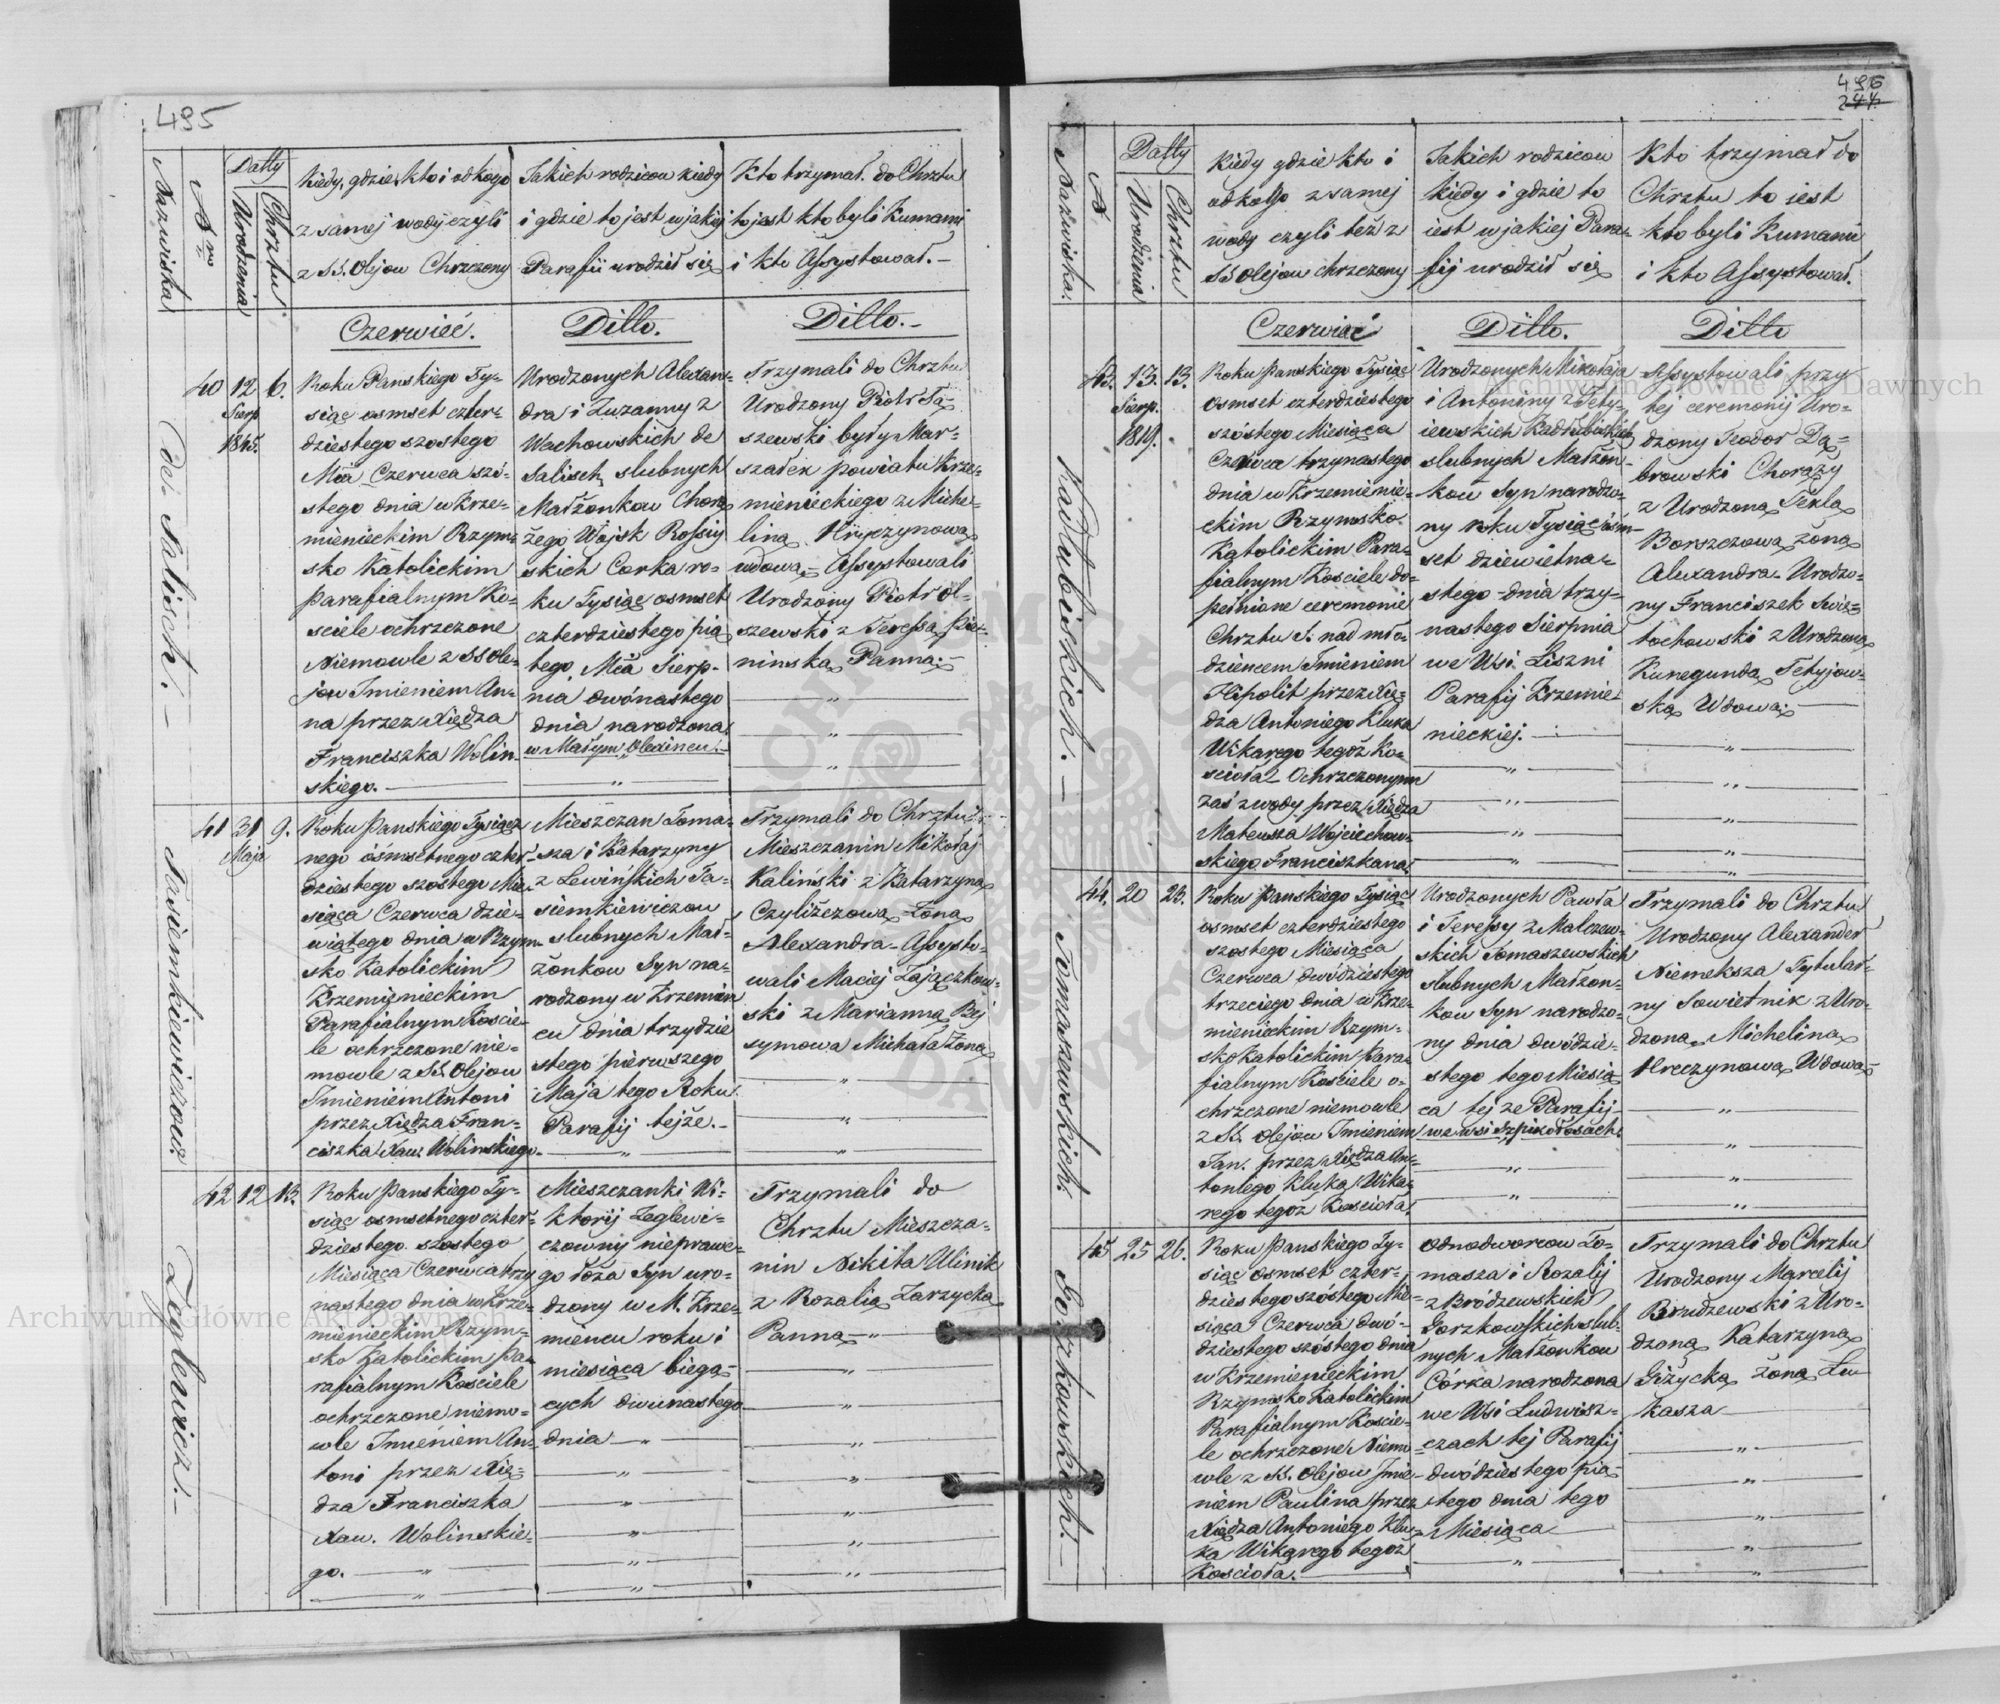 495
Nazwiska
Nro
Datty
Urodzenia
Chrztu
Kiedy, gdzie, kto i od kogo
z samej wody czyli
z SS. Olejow Chrzczony
Jakich rodzicow kiedy
i gdzie to jest w jakiej
Parafii urodził się
Kto trzymał do Chrztu
to jest kto byli Kumami
i kto Assystował.
Czerwiec.
Ditto.
Ditto.
de Salisch.
40
12
Sierp
1845.
6.
Roku Panskiego Ty-
siąc osmset czter-
dziestego szostego
Mca Czerwca szo-
stego dnia w Krze-
mienieckim Rzym-
sko Katolickim
parafialnym Ko-
sciele ochrzczone
Niemowle z SS Ole-
jow Imieniem An-
na przez Xiędza
Franciszka Wolin
skiego.
Urodzonych Alexan-
dra i Zuzanny z
Wachowskich de
Salisch, slubnych
Małżonkow Chorą
żego Wojsk Rossiy
skich Corka ro-
ku Tysiąc osmset
czterdziestego pią
tego, Mca Sierp-
nia dwónastego
dnia narodzona
w Małym Olexincu.
Trzymali do Chrztu
Urodzony Piotr Ta-
szewski były Mar-
szałek powiatu Krze-
mienieckiego z Miche-
liną Hryczynową
wdową, Assystowali
Urodzony Piotr Ol-
szewski z Teressą Piet-
ninską Panną.
Tasiemkiewiczow
41
31
Maja
9.
Roku Panskiego Tysiącz
nego ósmsetnego czter-
dziestego szostego Mie-
siąca Czerwca dzie-
wiątego dnia w Rzym-
sko Katolickim
Krzemienieckim
Parafialnym Koscie-
le ochrzczone nie-
mowle z SS. Olejow
Imieniem Antoni
przez Xiędza Fran-
ciszka Xaw: Wolinskiego.
Mieszczan Toma-
sza i Katarzyny
z Lewinskich Ta-
siemkiewiczow
slubnych Mał-
żonkow Syn na-
rodzony w Krzemien
cu dnia trzydzie
stego pierwszego
Maja tego Roku
Parafij tejże.
Trzymali do Chrztu
Mieszczanin Mikołaj
Kaliński z Katarzyną
Czyliżczową Żoną
Alexandra. Assysto-
wali Maciej Zajączkow-
ski z Marianną Rej
symową Michała Żoną
Zeglewicz.
42
12
13.
Roku Panskiego Ty-
siąc osmsetnego czter-
dziestego szostego
Miesiąca Czerwca trzy
nastego dnia w Krze-
mienieckim Rzym-
sko Katolickim Pa-
rafialnym Kosciele
ochrzczone niemo-
wle Imieniem An-
toni przez Xię-
dza Franciszka
Xaw. Wolinskie-
go.
Mieszczanki Wi-
ktorij Zeglewi-
czowny nieprawe-
go łoża Syn uro-
dzony w M. Krze-
miencu roku i
miesiąca bieżą-
cych dwunastego
dnia
Trzymali do
Chrztu Mieszcza-
nin Nikita Ulinik
z Rozalią Zarzycką
Panną
496
244
Nazwiska.
N
Datty
Urodzenia
Chrztu
Kiedy gdzie kto i
od kogo z samej
wody czyli też z
SS olejow chrzczony
Jakich rodzicow
kiedy i gdzie to
iest w jakiej Para-
fij urodził się
Kto trzymał do
Chrztu to iest
kto byli Kumami
i kto Assystował.
Czerwiec
Ditto.
Ditto
Kadłubiskich.
43.
13.
Sierp.
1819.
13.
Roku Panskiego Tysiąc
osmset czterdziestego
szóstego Miesiąca
Czerwca trzynastego
dnia w Krzemienie-
ckim Rzymsko
Katolickim Para-
fialnym Kosciele do-
pełnione ceremonie
Chrztu S. nad mło-
dziencem Imieniem
Hipolit przez Xię-
dza Antoniego Kluka
Wikarego tegoż Ko-
scioła Ochrzczonym
zaś z wody przez Xiędza
Mateusza Wojciechow-
skiego Franciszkana.
Urodzonych Mikołaja
i Antoniny z Tety-
iewskich Kadłubiskich
slubnych Małżon-
kow Syn narodzo-
ny roku Tysiąc ósm-
set dziewietna-
stego dnia trzy-
nastego Sierpnia
we Wsi Liszni
Parafij Krzemie-
nieckiej.
Assystowali przy
tej ceremonij Uro-
dzony Teodor Dą-
browski Chorąży
z Urodzoną Teklą
Borszczową żoną
Alexandra. Urodzo-
ny Franciszek Swiz-
tochowski z Urodzoną
Kunegundą Tetyjow-
ską Wdową.
Tomaszewskich.
44.
20
23.
Roku Panskiego Tysiąc
osmset czterdziestego
szostego Miesiąca
Czerwca dwódziestego
trzeciego dnia w Krze-
mienieckim Rzym-
sko Katolickim Para-
fialnym Kosciele o-
chrzczone niemowle
z SS. Olejow Imieniem
Jan. przez Xiędza An-
toniego Kluka Wika-
rego tegoż Koscioła.
Urodzonych Pawła
i Teressy z Malczew-
skich Tomaszewskich
slubnych Małżon-
kow Syn narodzo-
ny dnia dwódzie-
stego tego Miesią
ca tej że Parafij
we wsi Szpikołosach.
Trzymali do Chrztu
Urodzony Alexander
Niemeksza Tytular-
ny Sowietnik z Uro-
dzoną Micheliną
Hreczynową Wdową
Gorzkowskich.
45
25
26.
Roku Panskiego Ty-
siąc osmset czter-
dziestego szóstego Mie-
siąca Czerwca dwó-
dziestego szóstego dnia
w Krzemienieckim
Rzymsko Katolickim
Parafialnym Koscie-
le ochrzczone Niemo-
wle z SS. Olejow Imie-
niem Paulina przez
Xiędza Antoniego Klu-
ka Wikarego tegoż
Koscioła.
Odnodworcow To-
masza i Rozalij
z Bródzewskich
Gorzkowskich slub-
nych Małżonkow
Córka narodzona
we Wsi Ludwisz-
czach tej Parafij
dwódziestego pią-
tego dnia tego
Miesiąca
Trzymali do Chrztu
Urodzony Marcelij
Brudzewski z Uro-
dzoną Katarzyną
Giżycką żoną Łu-
kasza
Archiwum Główne Akt Dawnych
Archiwum Główne Akt Dawnych